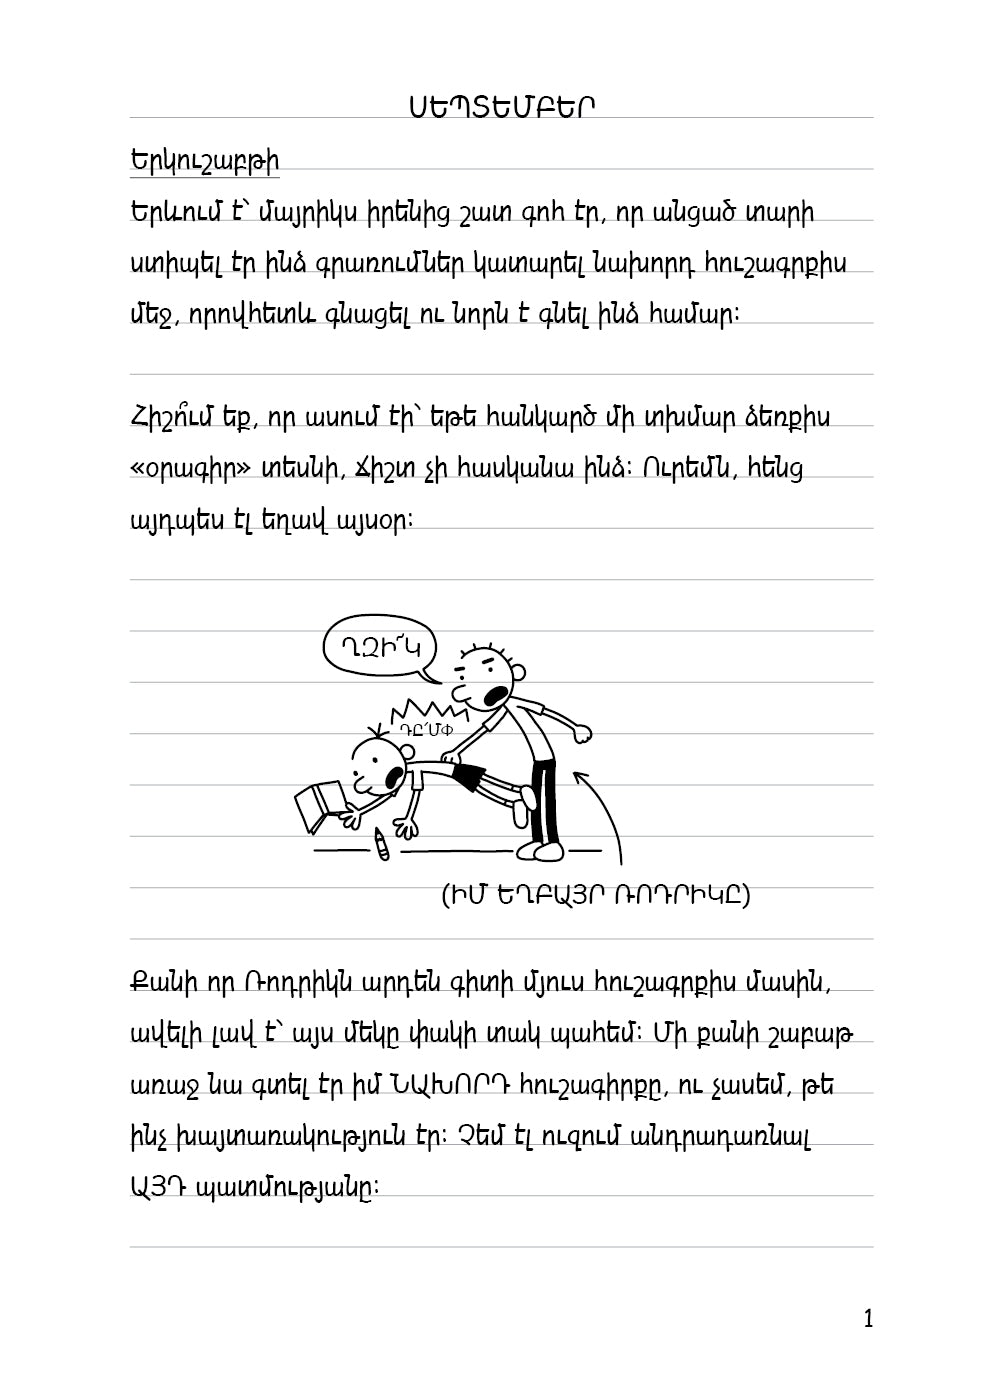 ՍԵՊՏԵՄԲԵՐ
Երկուշաբթի
Երևում է՝ մայրիկս իրենից շատ գոհ էր, որ անցած տարի
ստիպել էր ինձ գրառումներ կատարել նախորդ հուշագրքիս
մեջ, որովհետև գնացել ու նորն է գնել ինձ համար:
Հիշո՞ւմ եք, որ ասում էի՝ եթե հանկարծ մի տխմար ձեռքիս
«օրագիր» տեսնի, ճիշտ չի հասկանա ինձ: Ուրեմն, հենց
այդպես էլ եղավ այսօր:
ՂԶԻ՜Կ
ԴԸ՜ՄՓ
(ԻՄ ԵՂԲԱՅՐ ՌՈԴՐԻԿԸ)
Քանի որ Ռոդրիկն արդեն գիտի մյուս հուշագրքիս մասին,
ավելի լավ է՝ այս մեկը փակի տակ պահեմ: Մի քանի շաբաթ
առաջ նա գտել էր իմ ՆԱԽՈՐԴ հուշագիրքը, ու չասեմ, թե
ինչ խայտառակություն էր: Չեմ էլ ուզում անդրադառնալ
ԱՅԴ պատմությանը:
1